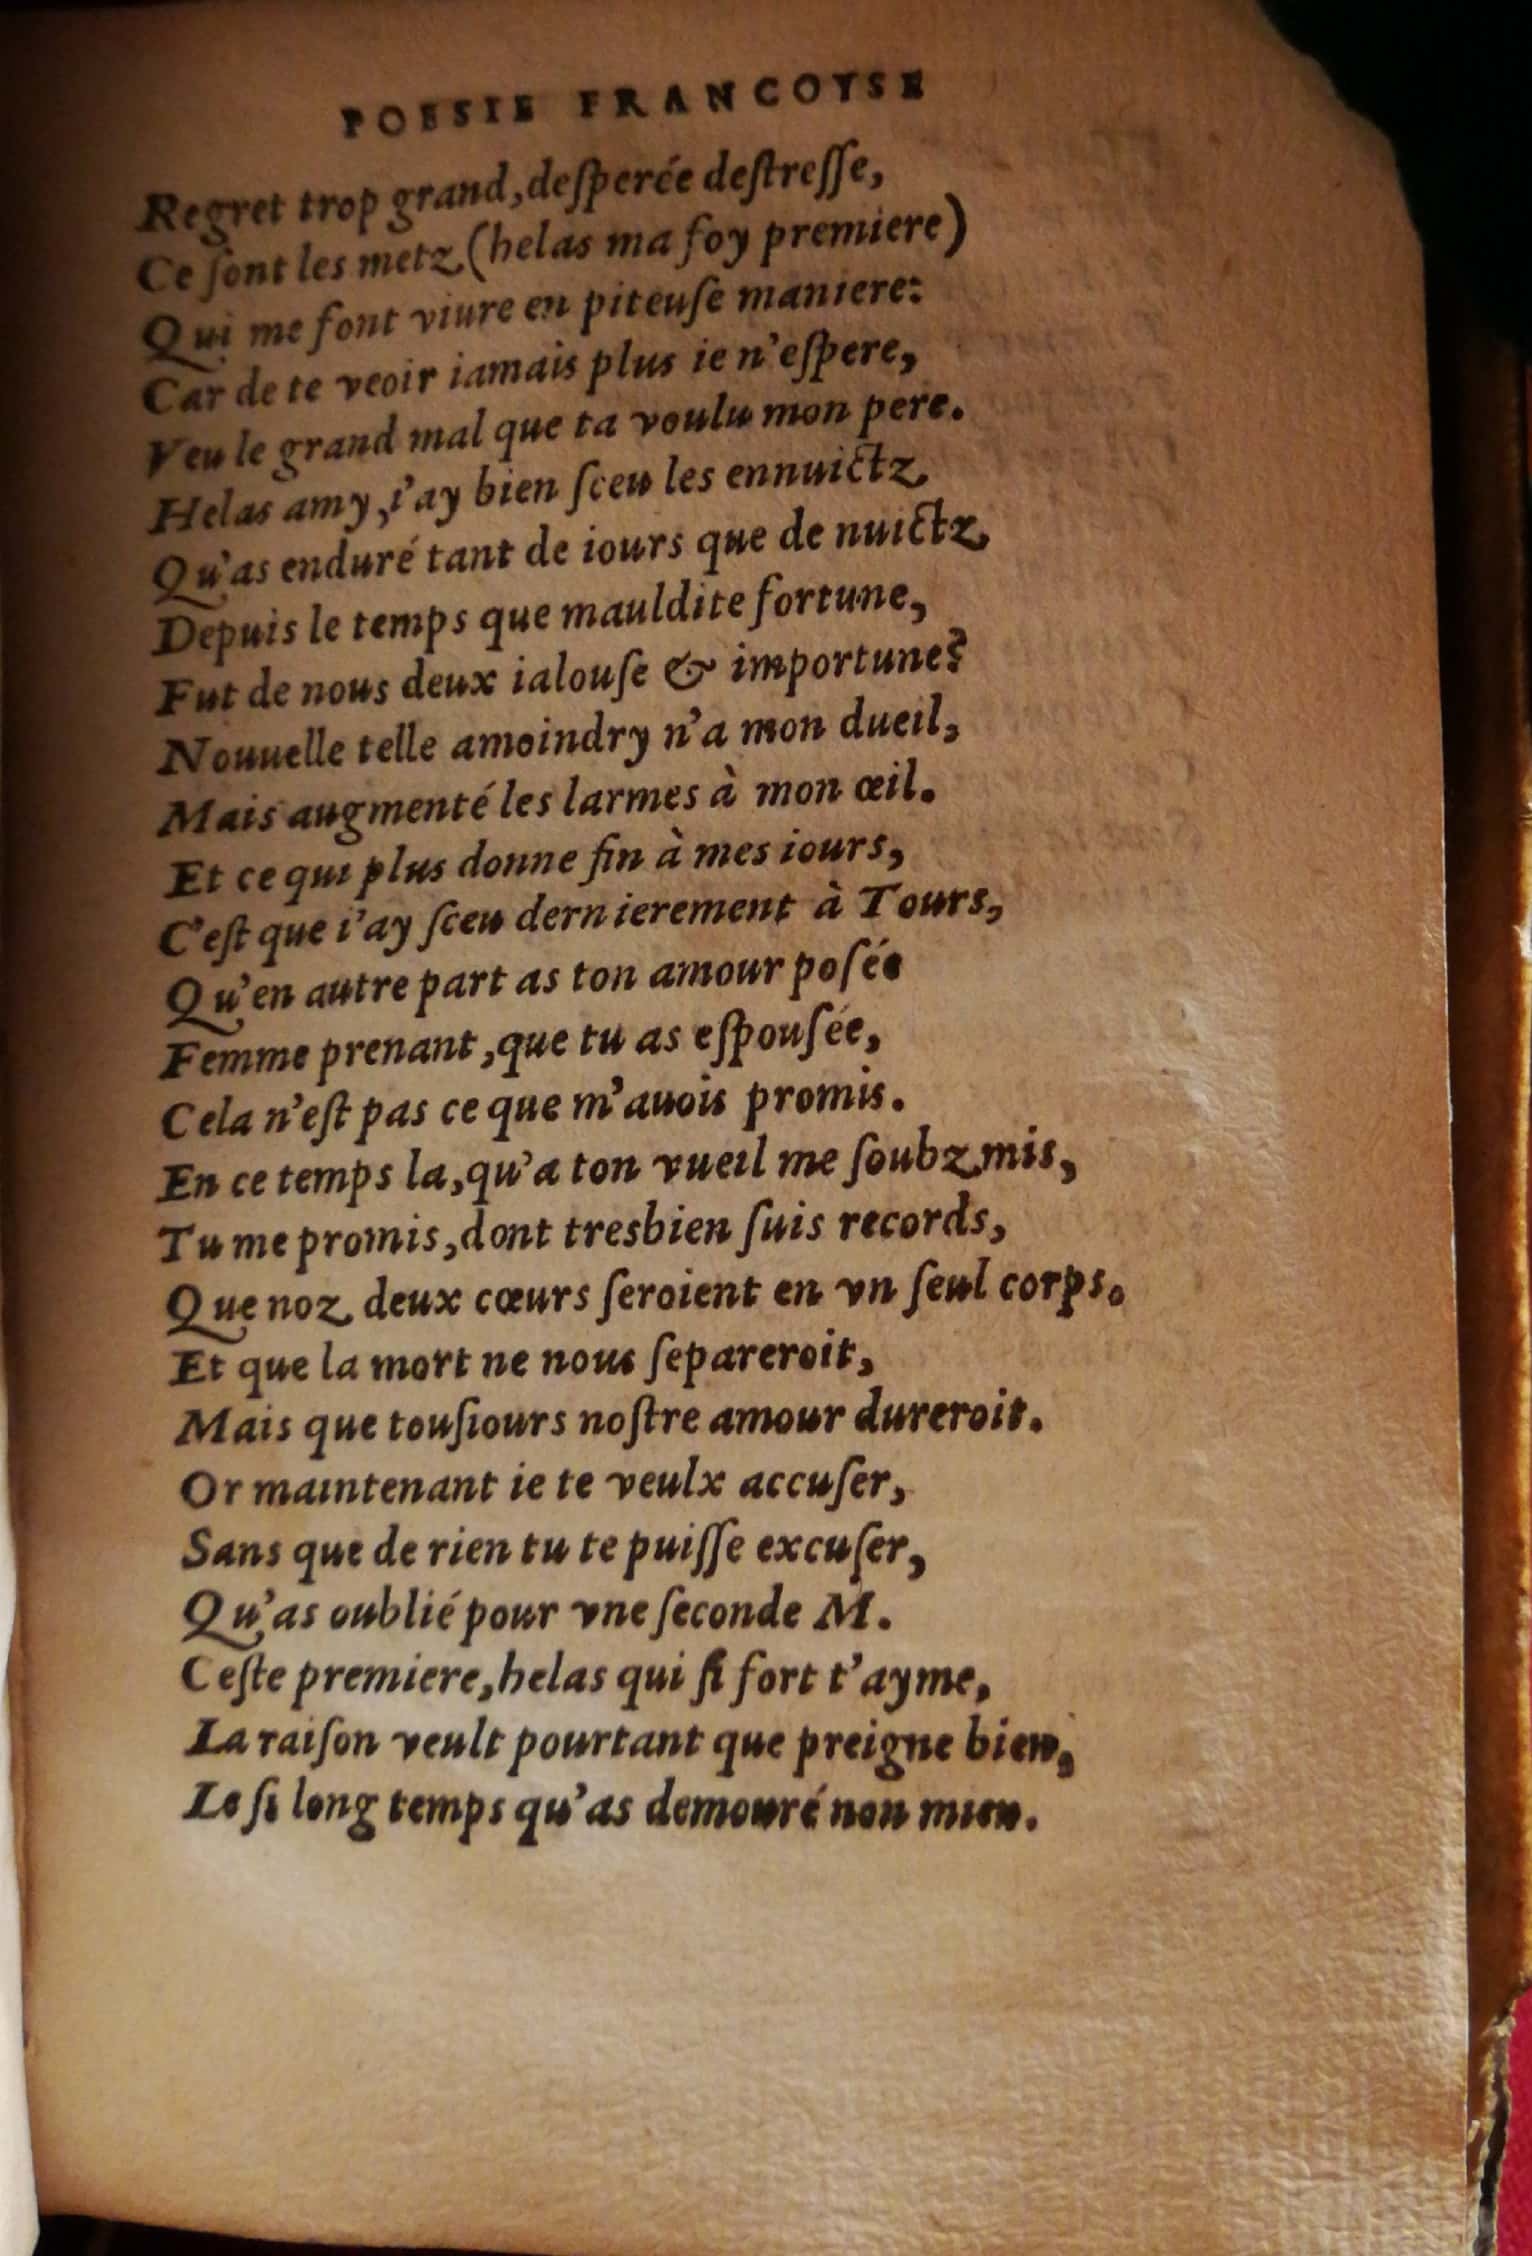 POESIE FRANCOYSE
Regret trop grand, deſperée deſtreſſe,
Ce ſont les metz (helas ma foy premiere)
Qui me font viure en piteuſe maniere:
Car de te veoir iamais plus ie n'eſpere,
Veu le grand mal que ta voulu mon pere.
Helas amy, i'ay bien ſceu les ennuictz
Qu'as enduré tant de iours que de nuictz
Depuis le temps que mauldite fortune,
Fut de nous deux ialouſe & importune?
Nouuelle telle amoindry n'a mon dueil,
Mais augmenté les larmes à mon œil.
Et ce qui plus donne fin à mes iours,
C'eſt que i'ay ſceu dernierement à Tours,
Qu'en autre part as ton amour poſée
Femme prenant, que tu as eſpouſée,
Cela n'eſt pas ce que m'auois promis.
En ce temps la, qu'a ton vueil me ſoubzmis,
Tu me promis, dont tresbien ſuis records,
Que noz deux cœurs ſeroient en vn ſeul corps.
Et que la mort ne nous ſepareroit,
Mais que touſiours noſtre amour dureroit.
Or maintenant ie te veulx accuſer,
Sans que de rien tu te puiſſe excuſer,
Qu'as oublié pour vne ſeconde M.
Ceſte premiere, helas qui ſi fort t'ayme,
La raiſon veult pourtant que preigne bien,
Le ſi long temps qu'as demouré non mien.